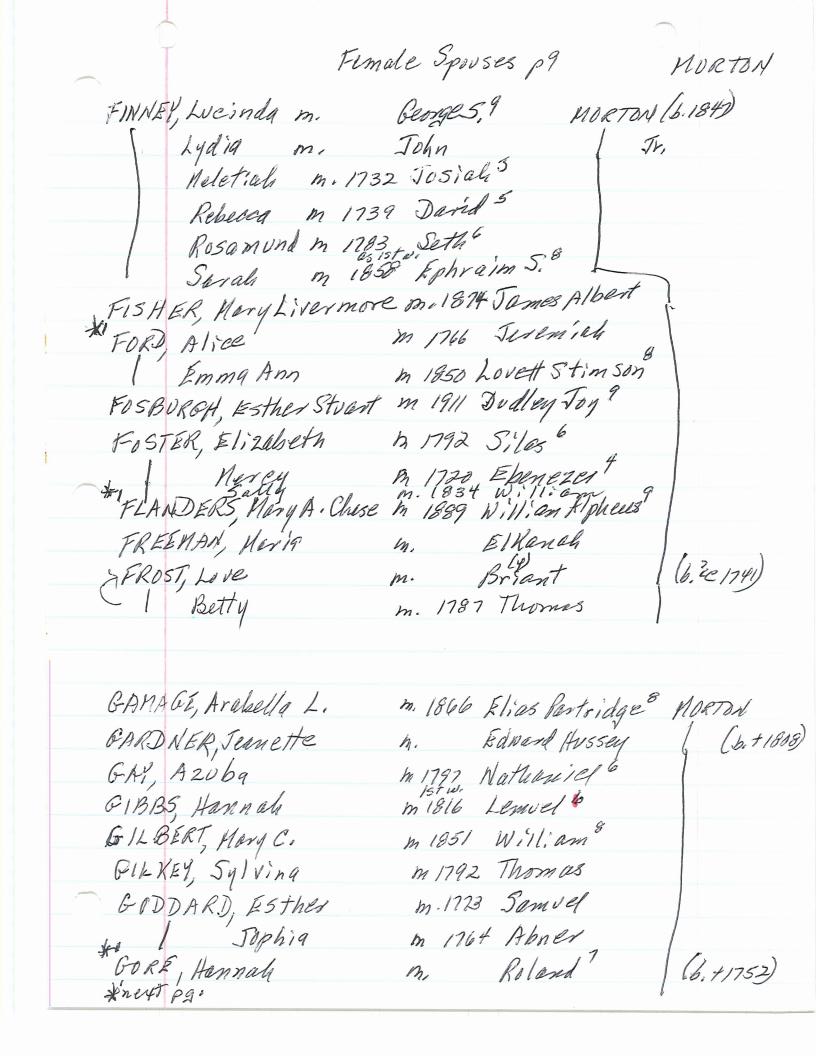 Female Spouses p9 MORTON
FINNEY, Lucinda m. George S.⁹ MORTON (b.1847)
Lydia m. John Jr,
Meletiah m. 1732 Josiah⁵
Rebecca m 1739 David⁵
Rosamund m 1783 Seth⁶
as 1st w.
Sarah m 1858 Ephraim S.⁸
FISHER, Mary Livermore m. 1874 James Albert
*¹ FORD, Alice m 1766 Jeremiah
Emma Ann m 1850 Lovett Stimson⁸
FOSBURGH, Esther Stuart m 1911 Dudley Joy⁹
FOSTER, Elizabeth m 1792 Silas⁶
Mercy m 1720 Ebenezer⁴
*¹ Sally m. 1834 William
FLANDERS, Mary A. Chase m 1889 William Alpheus⁹
FREEMAN, Maria m. Elkanah
FROST, Love m. Briant (b.?c 1741)
(y)
Betty m. 1787 Thomas
GAMAGE, Arabella L. m. 1866 Elias Partridge⁸ MORTON
GARDNER, Jeanette m. Edward Hussey (b.+1808)
GAY, Azuba m 1797 Nathaniel⁶
1st w.
GIBBS, Hannah m 1816 Lemuel⁶
GILBERT, Mary C. m 1851 William⁸
GILKEY, Sylvina m 1792 Thomas
GODDARD, Esther m. 1773 Samuel
Sophia m 1764 Abner
GORE, Hannah m, Roland⁷ (b.+1752)
*next pg.